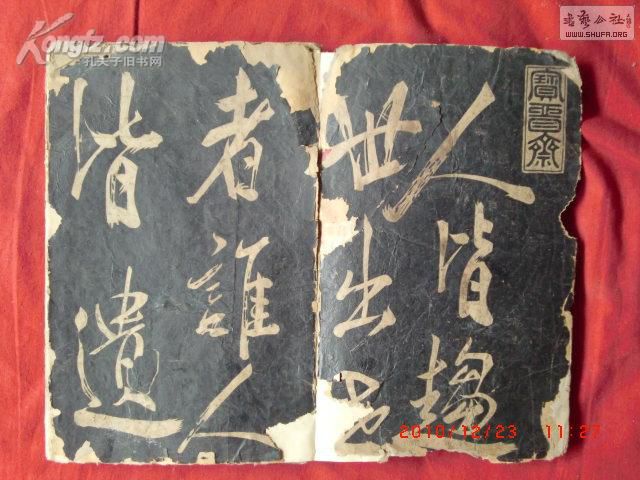 寶晉齋
人皆趨
世出世
者誰人
皆遺
Kongfz.com
孔夫子旧书网
書藝公社
WWW.SHUFA.ORG
2010/12/23 11:27